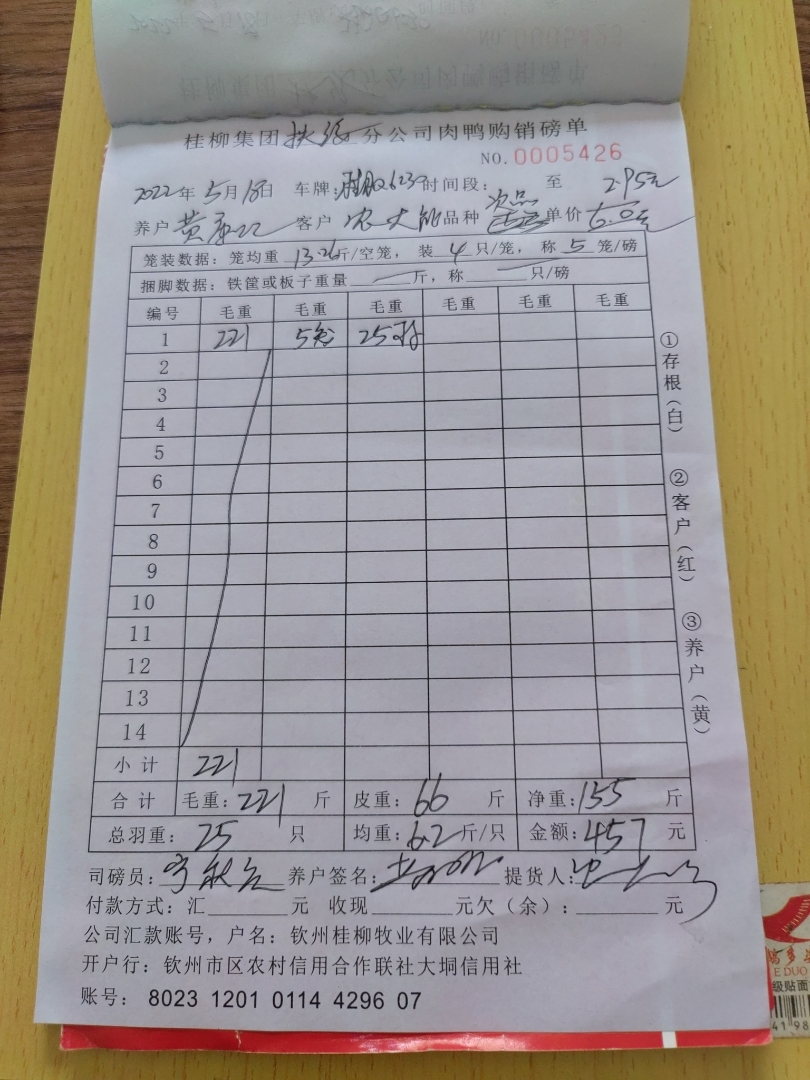 NO. 0005423
桂柳集团 分公司肉鸭购销磅单
NO. 0005426
2022年5月18日 车牌: 时间段: 至 2.95元
养户 黄 客户 农大 品种 次品 单价 6.0元
笼装数据: 笼均重 13.26斤/空笼, 装 4 只/笼, 称 5 笼/磅
捆脚数据: 铁筐或板子重量 一 斤, 称 一 只/磅
编号 毛重 毛重 毛重 毛重 毛重 毛重
1 221 5笼 25只
2
3
4
5
6
7
8
9
10
11
12
13
14
小计 221
合计 毛重: 221 斤 皮重: 66 斤 净重: 155 斤
总羽重: 25 只 均重: 6.2 斤/只 金额: 457 元
司磅员: 养户签名: 提货人:
付款方式: 汇 元 收现 元欠(余): 元
公司汇款账号, 户名: 钦州桂柳牧业有限公司
开户行: 钦州市区农村信用合作联社大垌信用社
账号: 8023 1201 0114 4296 07
①存根(白)
②客户(红)
③养户(黄)
E DUO
级贴面